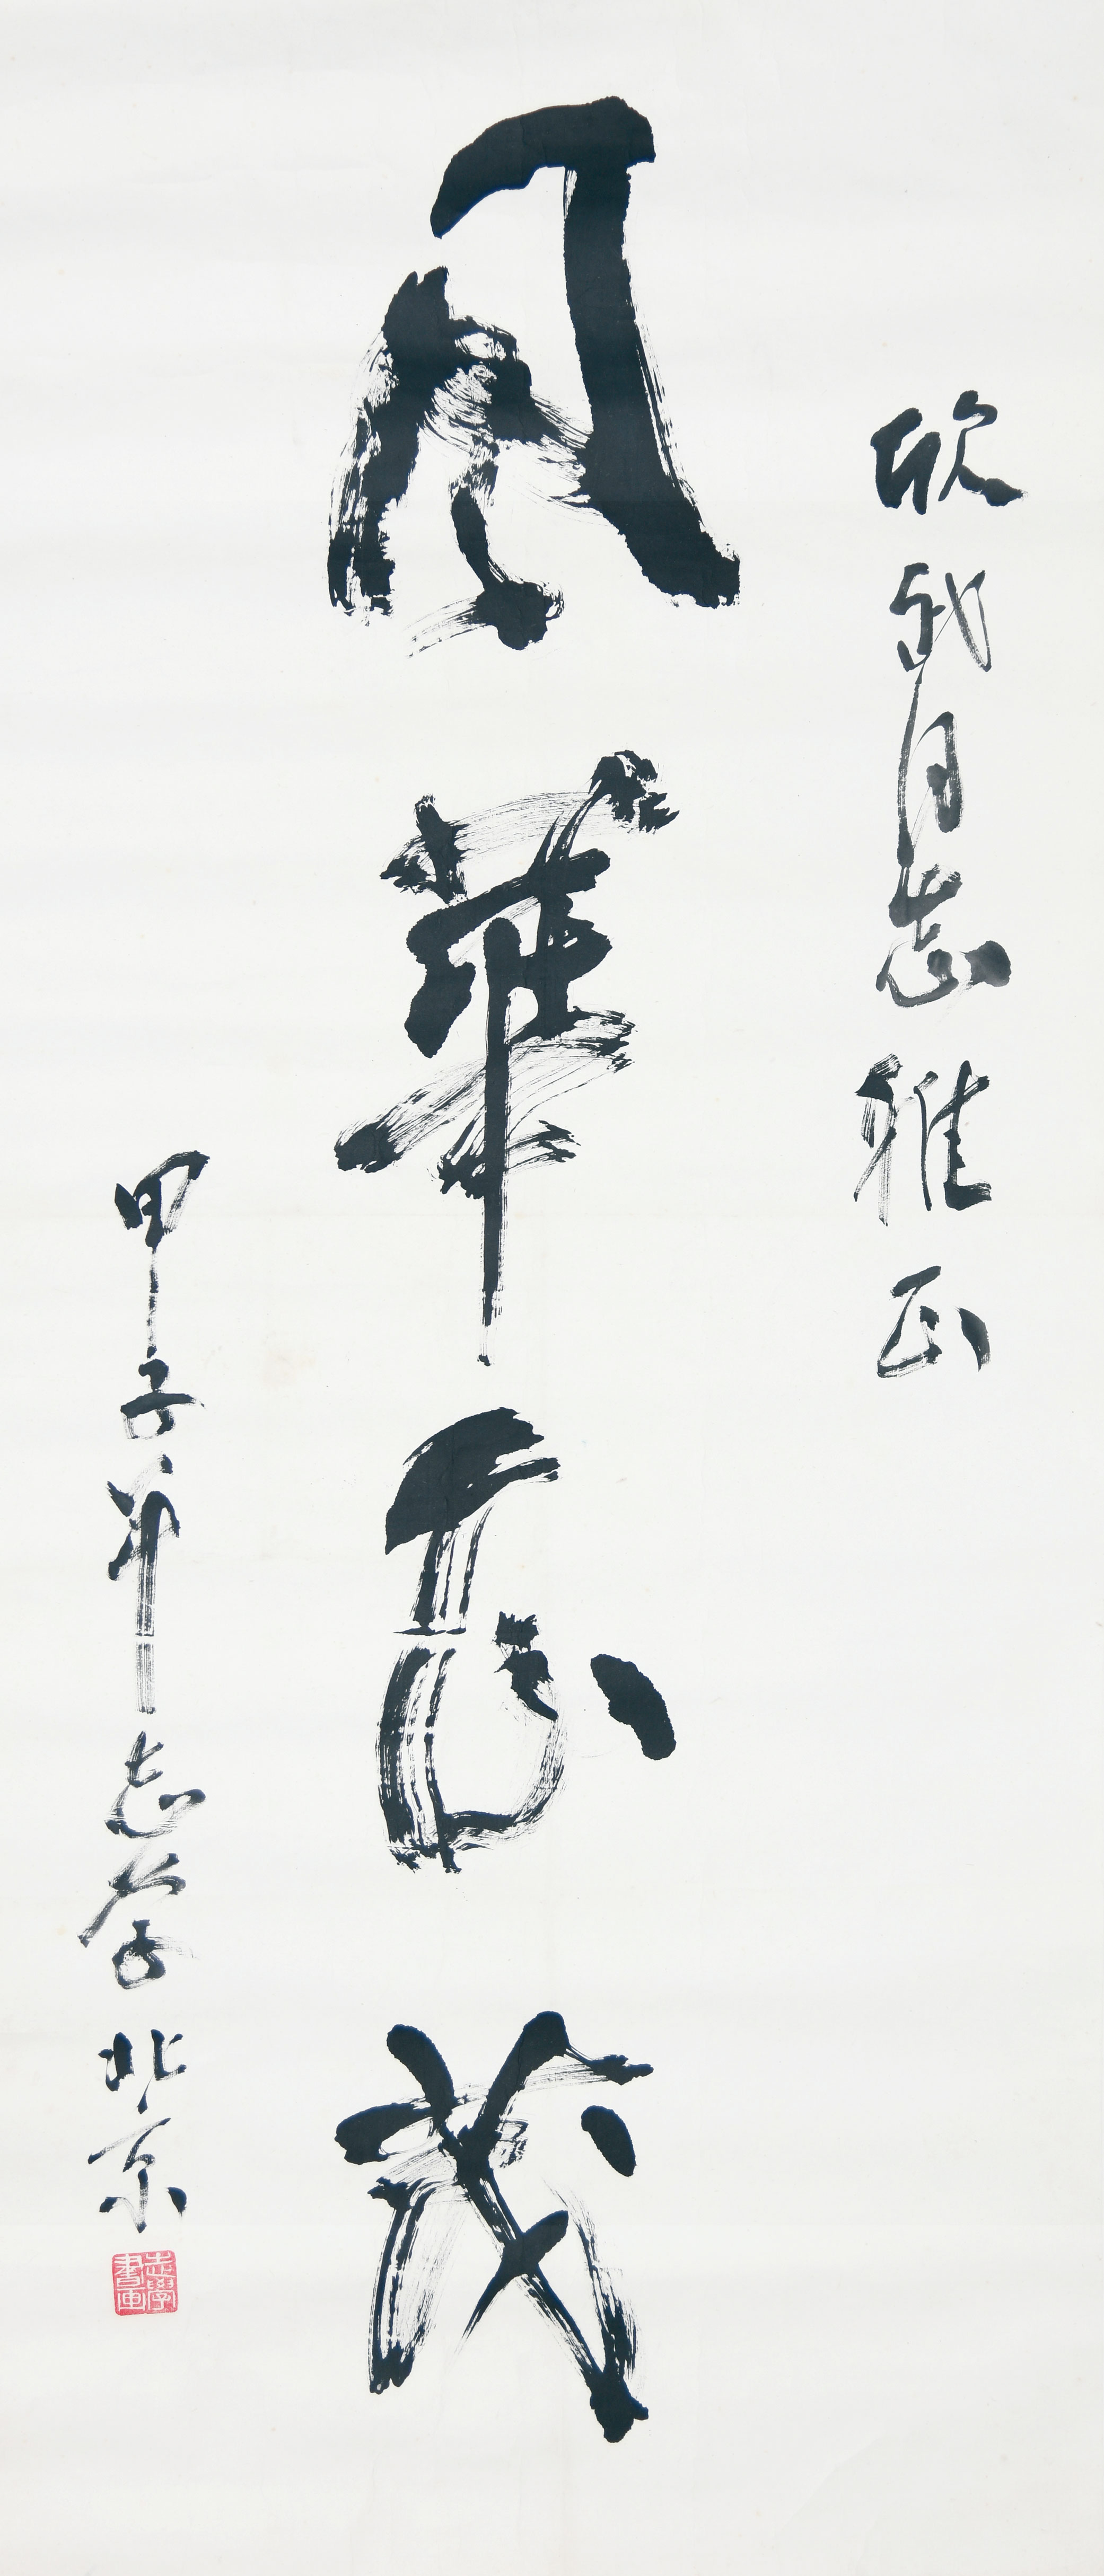 欣我同志雅正
風華正茂
甲子年志学北京
志學書画